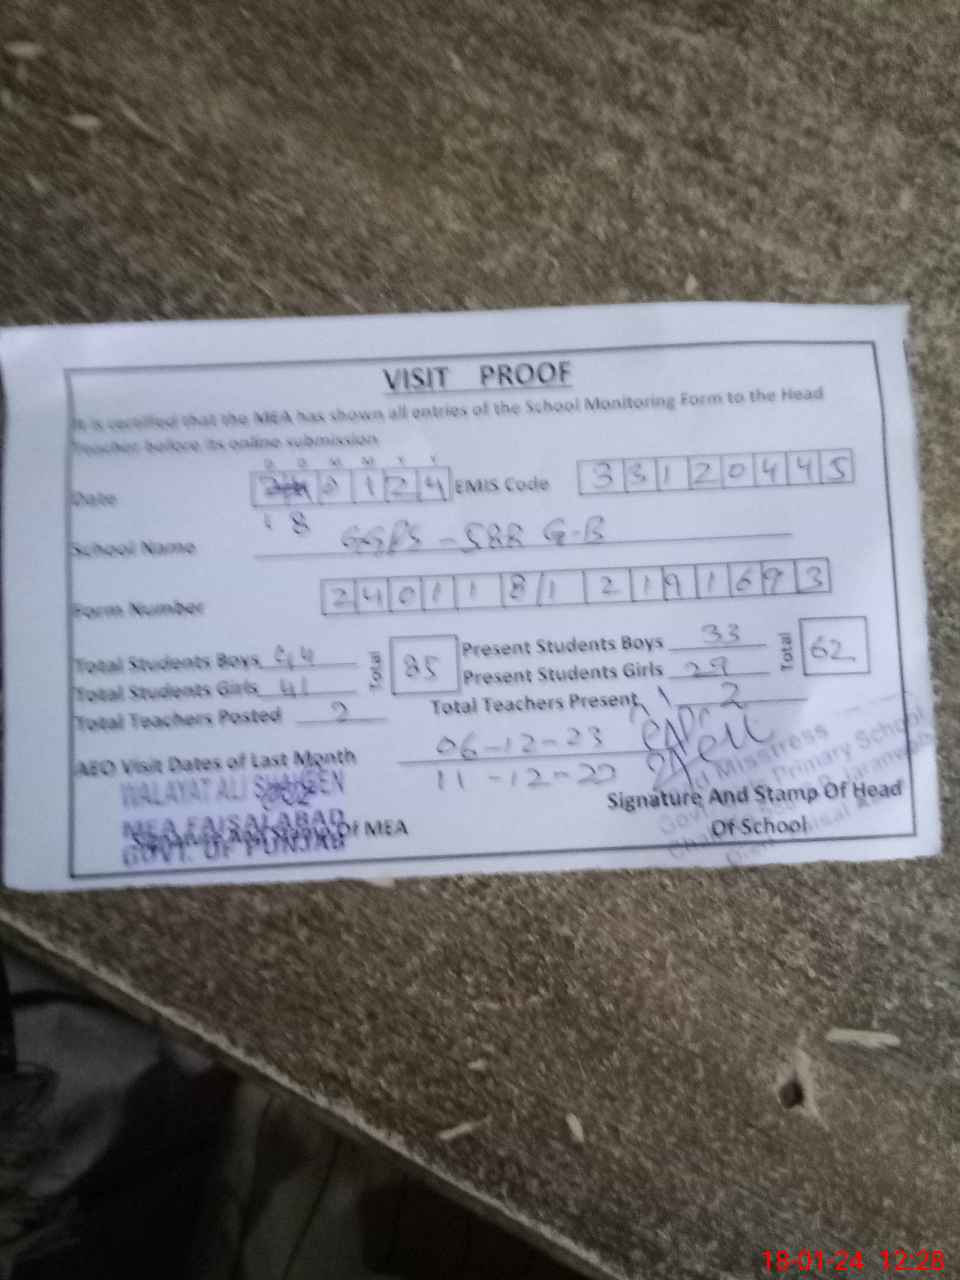 VISIT PROOF
It is certified that the MEA has shown all entries of the School Monitoring Form to the Head
Teacher before its online submission
D D M M Y Y
Date 0 1 2 4 EMIS Code 3 3 1 2 0 4 4 5
18
School Name GGPS - 588 G-B
Form Number 2 4 0 1 1 8 1 2 1 9 1 6 9 3
Total Students Boys 44 Total 85 Present Students Boys 33 Total 62
Total Students Girls 41 Present Students Girls 29
Total Teachers Posted 2 Total Teachers Present 2
AEO Visit Dates of Last Month 06-12-23
11-12-23
WALAYAT ALI SHAHEEN
MEA FAISALABAD
GOVT. OF PUNJAB
Signature And Stamp Of MEA
Signature And Stamp Of Head
Of School
Head Mistress
Govt. Girls Primary School
18-01-24 12:28